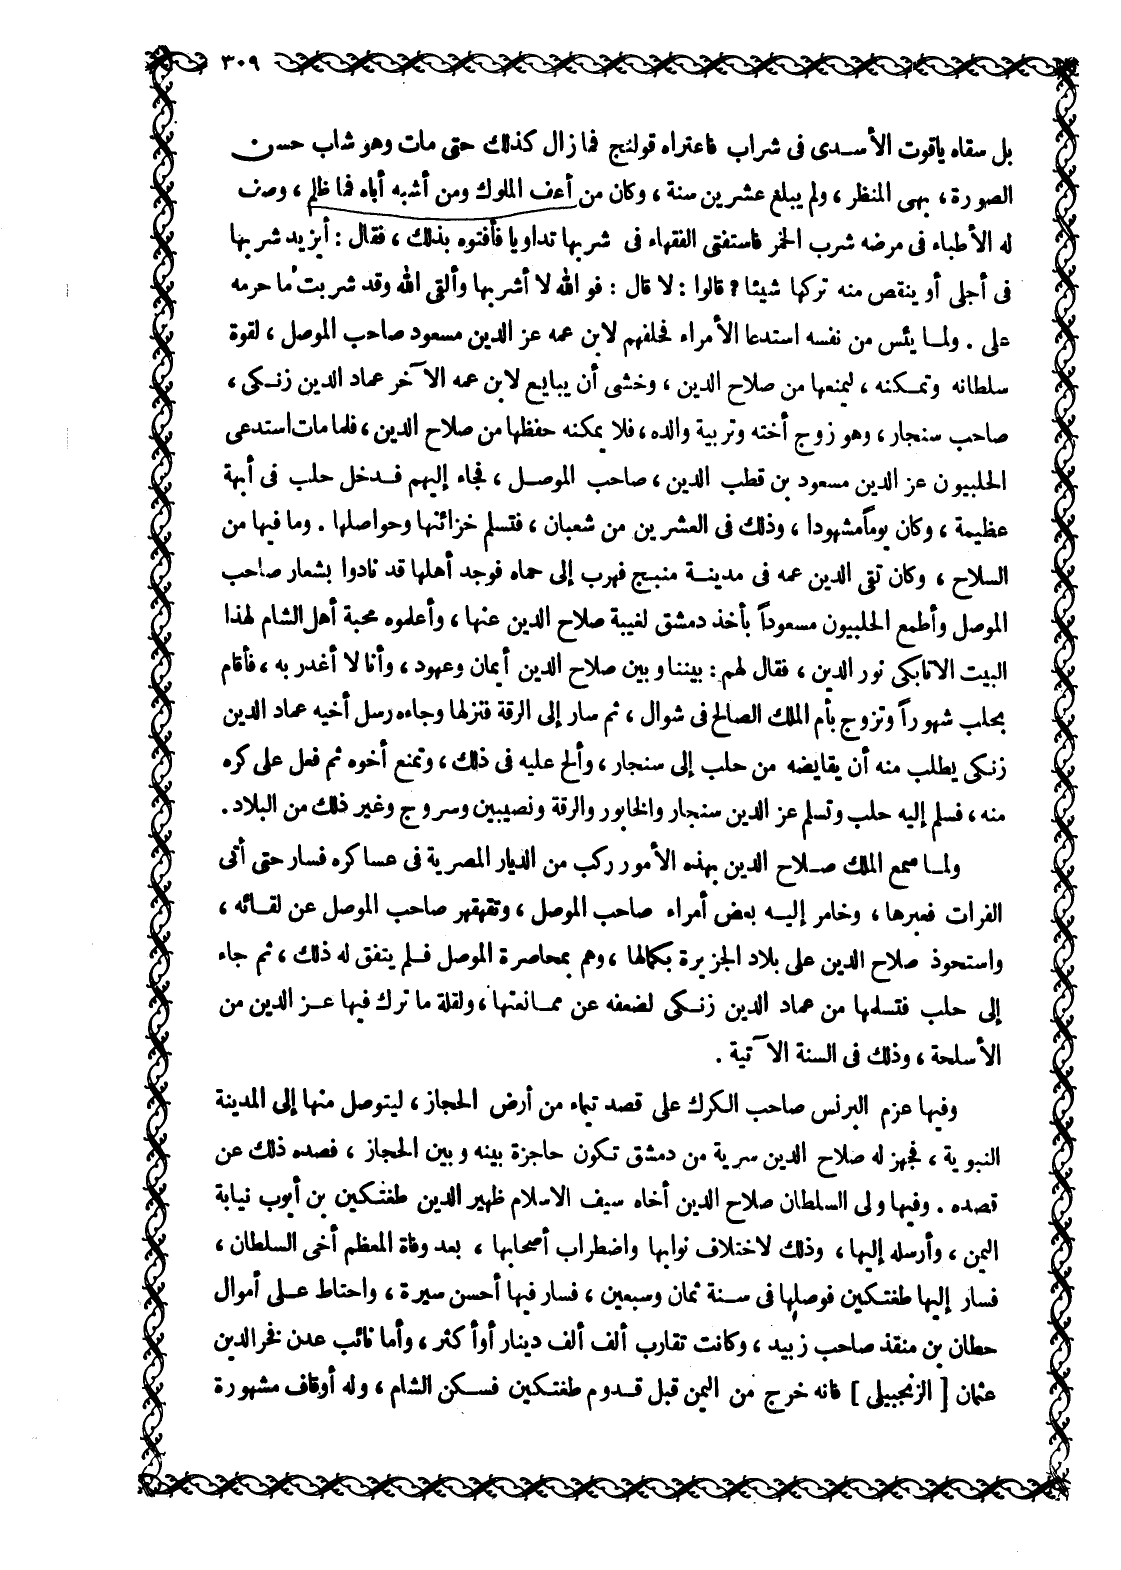 ٣٠٩
بل سقاه ياقوت الأسدى فى شراب فاعتراه قولنج فما زال كذلك حتى مات وهو شاب حسن
الصورة ، بهى المنظر ، ولم يبلغ عشرين سنة ، وكان من أعف الملوك ومن أشبه أباه فما ظلم ، وصف
له الأطباء فى مرضه شرب الخمر فاستفتى الفقهاء فى شربها تداويا فأفتوه بذلك ، فقال : أيزيد شربها
فى أجلى أو ينقص منه تركها شيئا ? قالوا : لا قال : فو الله لا أشربها وألقى الله وقد شربت ما حرمه
على . ولما يئس من نفسه استدعا الأمراء فحلفهم لابن عمه عز الدين مسعود صاحب الموصل ، لقوة
سلطانه وتمكنه ، ليمنعها من صلاح الدين ، وخشى أن يبايع لابن عمه الآخر عماد الدين زنكى ،
صاحب سنجار ، وهو زوج أخته وتربية والده ، فلا يمكنه حفظها من صلاح الدين ، فلما مات استدعى
الحلبيون عز الدين مسعود بن قطب الدين ، صاحب الموصل ، فجاء إليهم فدخل حلب فى أبهة
عظيمة ، وكان يوماً مشهودا ، وذلك فى العشرين من شعبان ، فتسلم خزائنها وحواصلها . وما فيها من
السلاح ، وكان تقى الدين عمه فى مدينة منبج فهرب إلى حماه فوجد أهلها قد نادوا بشعار صاحب
الموصل وأطمع الحلبيون مسعوداً بأخذ دمشق لغيبة صلاح الدين عنها ، وأعلموه محبة أهل الشام لهذا
البيت الاتابكى نور الدين ، فقال لهم : بيننا وبين صلاح الدين أيمان وعهود ، وأنا لا أغدر به ، فأقام
بحلب شهوراً وتزوج بأم الملك الصالح فى شوال ، ثم سار إلى الرقة فنزلها وجاءه رسل أخيه عماد الدين
زنكى يطلب منه أن يقايضه من حلب إلى سنجار ، وألح عليه فى ذلك ، وتمنع أخوه ثم فعل على كره
منه ، فسلم إليه حلب وتسلم عز الدين سنجار والخابور والرقة ونصيبين وسروج وغير ذلك من البلاد .
ولما سمع الملك صلاح الدين بهذه الأمور ركب من الديار المصرية فى عساكره فسار حتى أتى
الفرات فعبرها ، وخامر إليه بعض أمراء صاحب الموصل ، وتقهقهر صاحب الموصل عن لقائه ،
واستحوذ صلاح الدين على بلاد الجزيرة بكمالها ، وهم بمحاصرة الموصل فلم يتفق له ذلك ، ثم جاء
إلى حلب فتسلمها من عماد الدين زنكى لضعفه عن ممانعتها ، ولقلة ما ترك فيها عز الدين من
الأسلحة ، وذلك فى السنة الآتية .
وفيها عزم البرنس صاحب الكرك على قصد تيماء من أرض الحجاز ، ليتوصل منها إلى المدينة
النبوية ، فجهز له صلاح الدين سرية من دمشق تكون حاجزة بينه وبين الحجاز ، فصده ذلك عن
قصده . وفيها ولى السلطان صلاح الدين أخاه سيف الاسلام ظهير الدين طغتكين بن أيوب نيابة
اليمن ، وأرسله إليها ، وذلك لاختلاف نوابها واضطراب أصحابها ، بعد وفاة المعظم أخى السلطان ،
فسار إليها طغتكين فوصلها فى سنة ثمان وسبعين ، فسار فيها أحسن سيرة ، واحتاط على أموال
حطان بن منقذ صاحب زبيد ، وكانت تقارب ألف ألف دينار أو أكثر ، وأما نائب عدن فخر الدين
عثمان [ الزنجبيلى ] فانه خرج من اليمن قبل قدوم طغتكين فسكن الشام ، وله أوقاف مشهورة